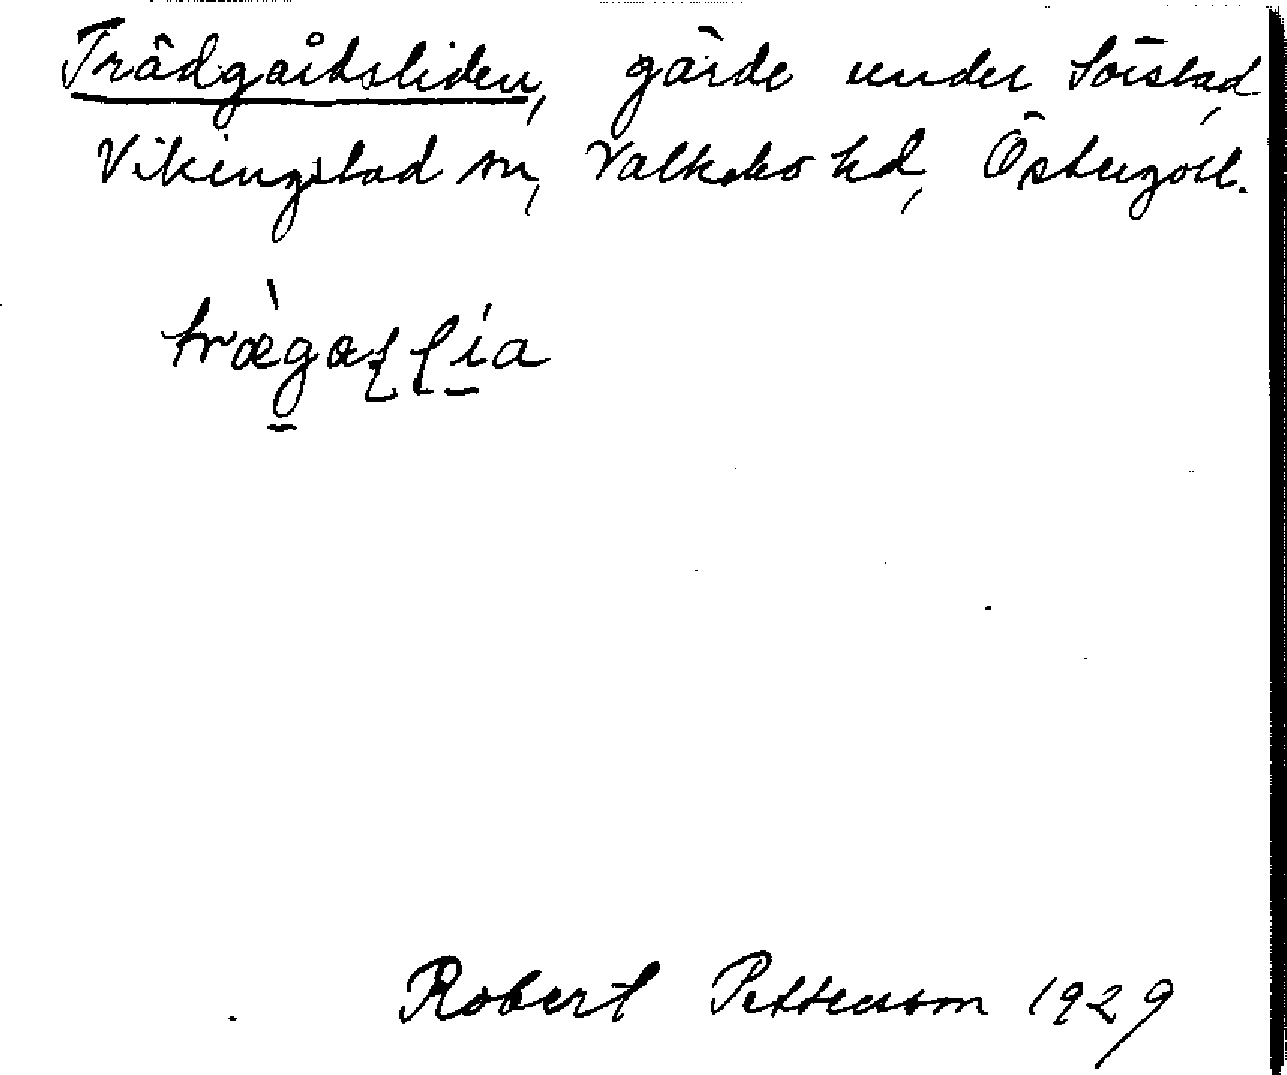 Trädgårdsliden, gärde under Sörstad,
Vikingstad sn, Valkebo hd, Östergötl.
Robert Pettersson 1929